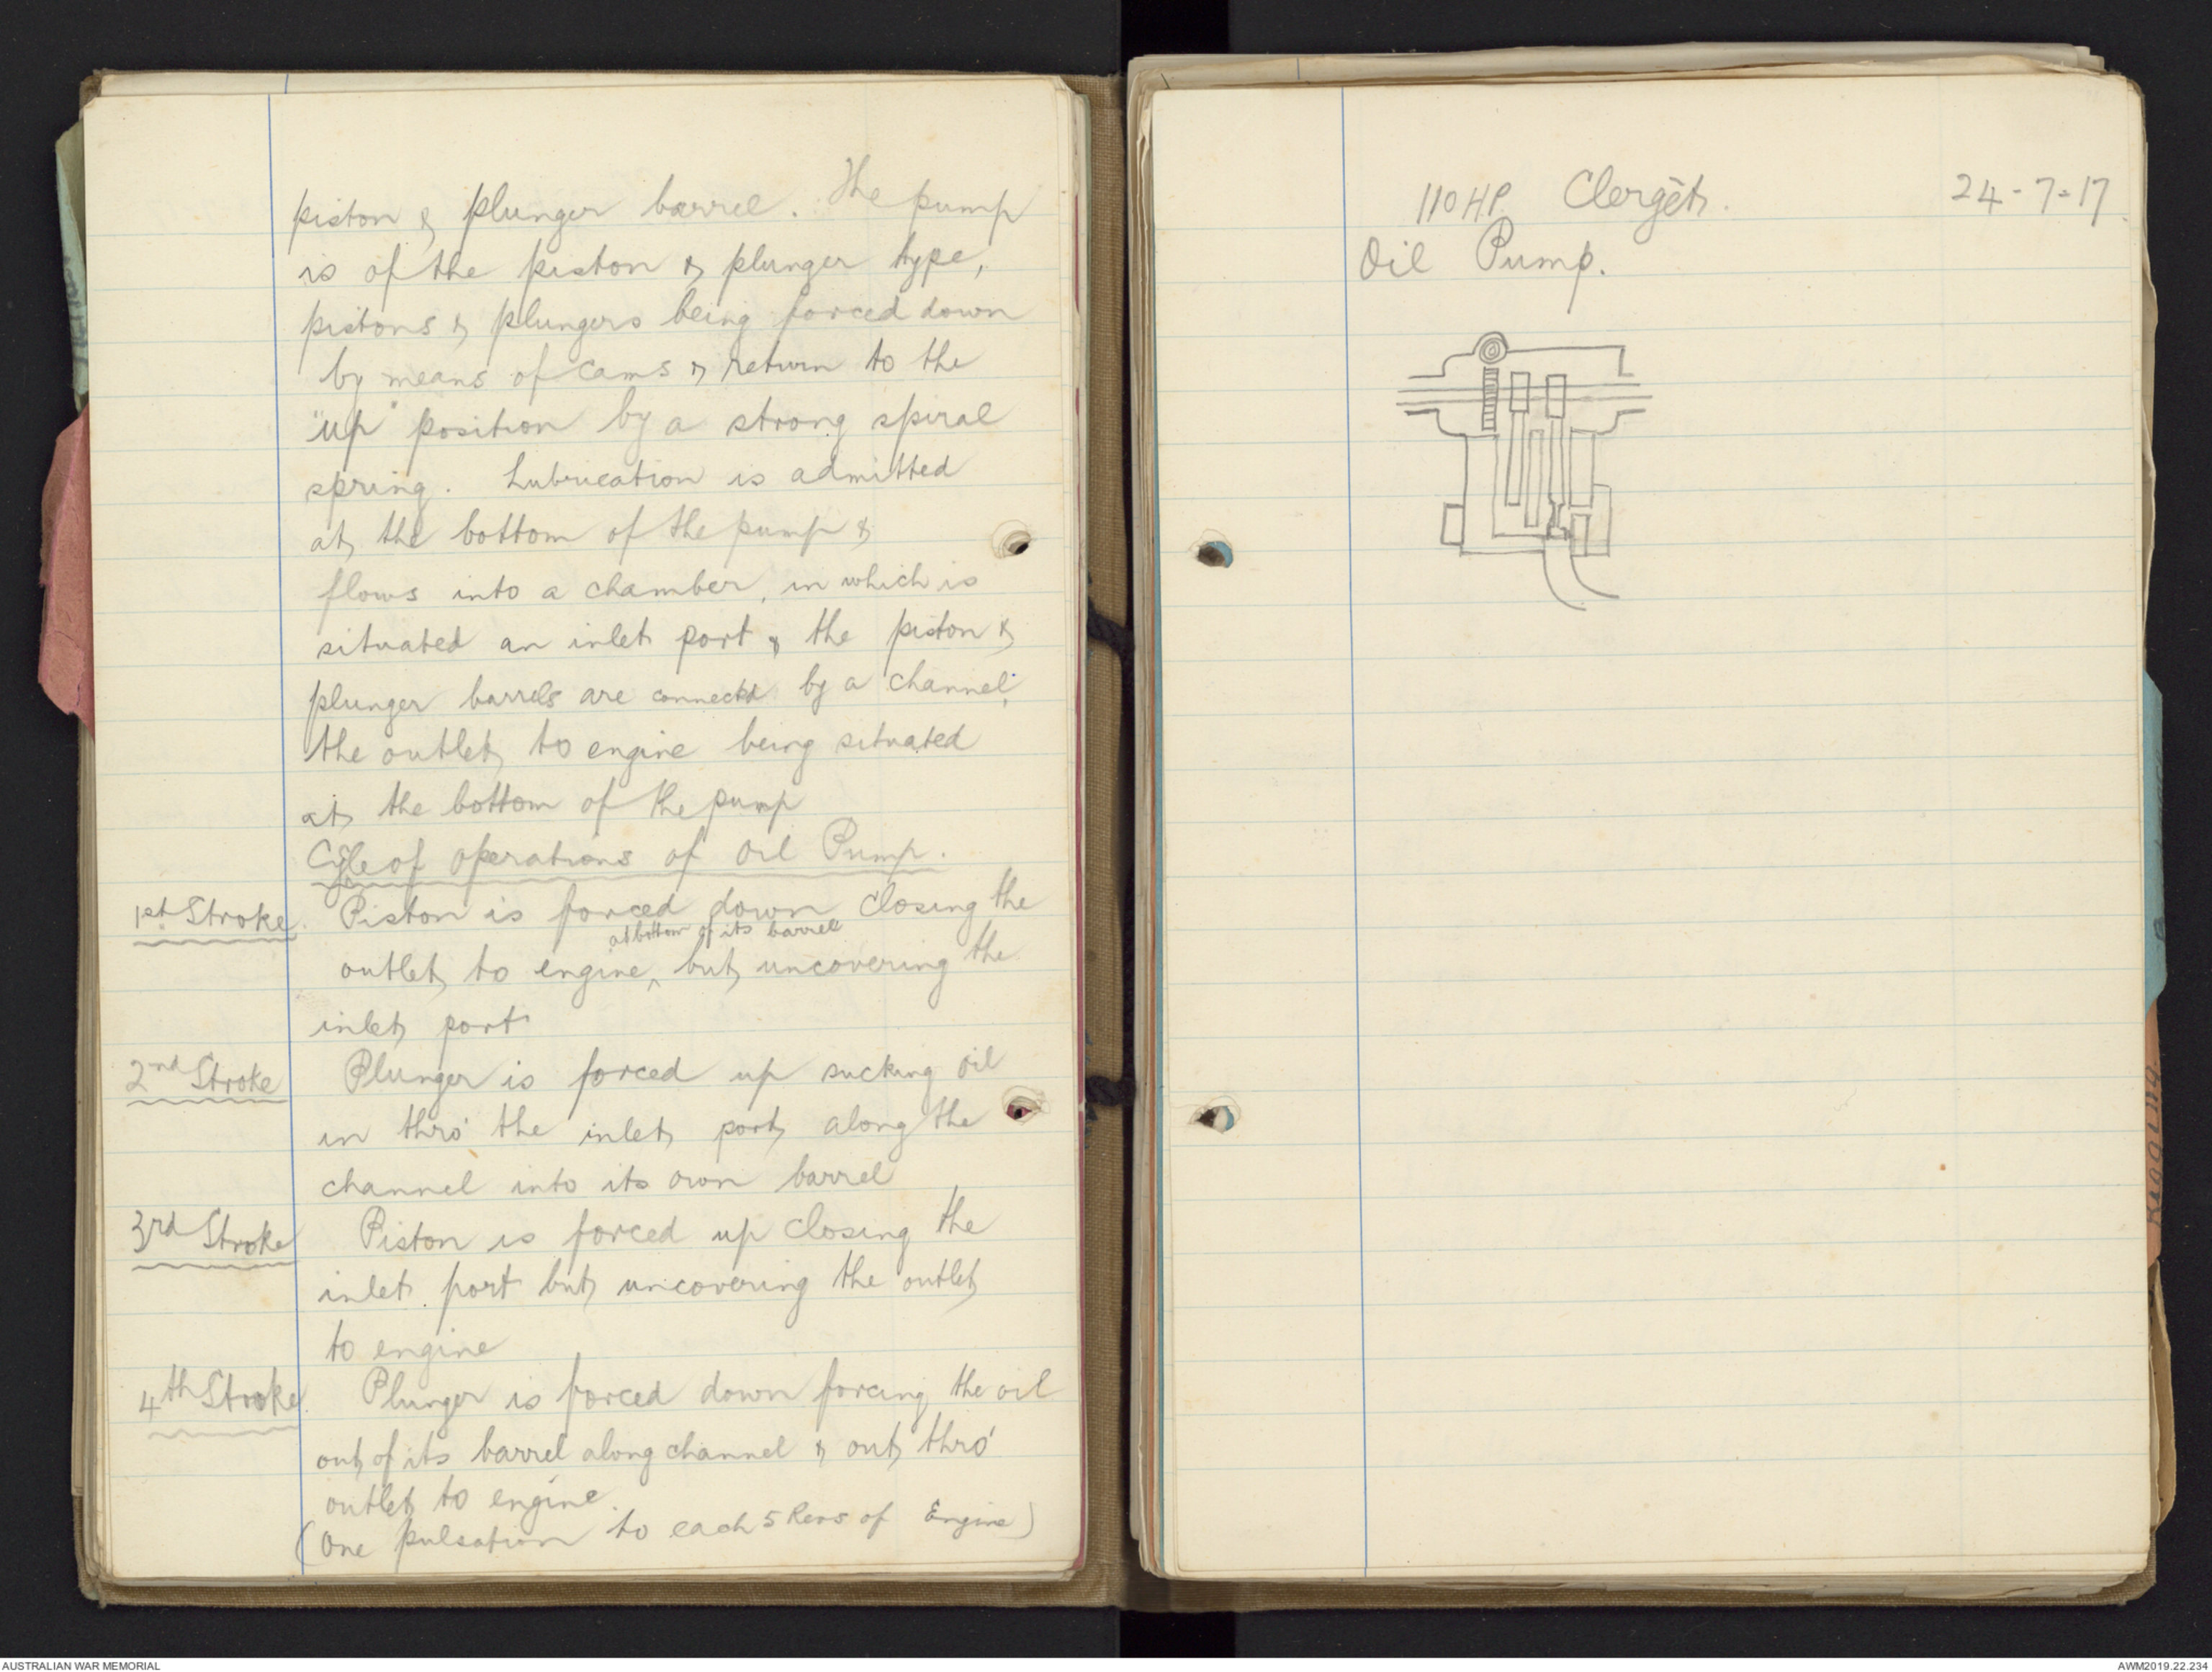 piston & plunger barrel. The pump
is of the piston & plunger type,
pistons & plungers being forced down
by means of cams & return to the
"up" position by a strong spiral
spring. Lubrication is admitted
at the bottom of the pump &
flows into a chamber, in which is
situated an inlet port & the piston &
plunger barrels are connectd by a channel,
the outlet to engine being situated
at the bottom of the pump
Cycle of operations of Oil Pump.
1st Stroke. Piston is forced down closing the
at bottom of its barrel
outlet to engine ‸ but uncovering the
inlet port
2nd Stroke Plunger is forced up sucking oil
in thro' the inlet port along the
channel into its own barrel
3rd Stroke Piston is forced up closing the
inlet port but uncovering the outlet
to engine
4th Stroke. Plunger is forced down forcing the oil
out of its barrel along channel & out thro'
outlet to engine.
(One pulsation to each 5 Revs of Engine)
110 HP Clergêt. 24-7-17.
Oil Pump.
AUSTRALIAN WAR MEMORIAL
AWM2019.22.234